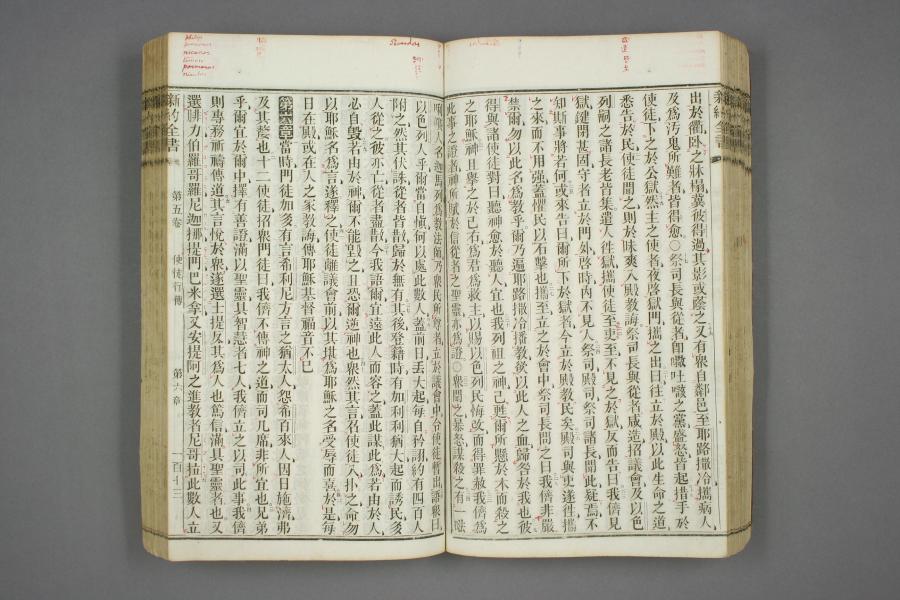 出於衢臥之牀榻冀彼得過其影或蔭之又有衆自鄰邑至耶路撒冷攜病人
及爲汚鬼所難者皆得愈○祭司長與從者卽吐之黨盛怒皆起措手於
使徒下之於公獄然主之使者夜啓獄門攜之出曰往立於殿以此生命之道
悉告於民使徒聞之則於昧爽入殿敎誨祭司長與從者咸造招議會及以色
列嗣之諸長老皆集遣人徃獄攜使徒至吏至不見之於獄反而告曰我儕見
獄鍵閉甚固守者立於門外啓時內不見人祭司殿司祭司諸長聞此疑焉不
知斯事將若何或來告曰爾所下於獄者今立於殿敎民矣殿司與吏遂徃攜
之來而不用强蓋懼民以石擊也攜至立之於會中祭司長問之曰我儕非嚴
禁爾勿以此名爲敎乎爾乃遍耶路撒冷播敎欲以此人之血歸咎於我也彼
得與諸使徒對曰聽神愈於聽人宜也我列祖之神已甦爾所懸於木而殺之
之耶穌神且舉之於己右爲君爲救主以賜以色列民悔改而得罪赦我儕爲
此事之證者神所賦於信從者之聖靈亦爲證○衆聞之暴怒謀殺之有一
人名迦馬列爲敎法師乃衆民所尊者立於議會中令使徒暫出語衆曰
以色列人乎爾當自愼何以處此數人蓋前日丟大起每自矜詡約有四百人
附之然其伏誅從者皆散歸於無有其後登籍時有加利利猶大起而誘民多
人從之彼亦亡從者盡散今我語爾宜遠此人而容之蓋此謀此爲若由於人
必自毀若由於神爾不能毀之且恐爾逆神也衆然其言名使徒入扑之命勿
以耶穌名爲言遂釋之使徒離議會前以其堪爲耶穌之名受辱而喜於是每
日在殿或在人之家敎誨傳耶穌基督福音不已
第六章當時門徒加多有言希利尼方言之猶太人怨希百來人因日施濟弗
及其嫠也十二使徒招衆門徒曰我儕不傳神之道而司几席非所宜也兄弟
乎爾宜於爾中擇有善證滿以聖靈具智慧者七人我儕立之以司此事我儕
則專務祈禱傳道其言悅於衆遂選士提反其爲人也篤信滿具聖靈者也又
選腓力伯羅哥羅尼迦挪提門巴米拿又安提阿之進敎者尼哥拉此數人立
新約全書 第五卷 使徒行傳 第六章 一百十三
新約全書
Philip
nicanor